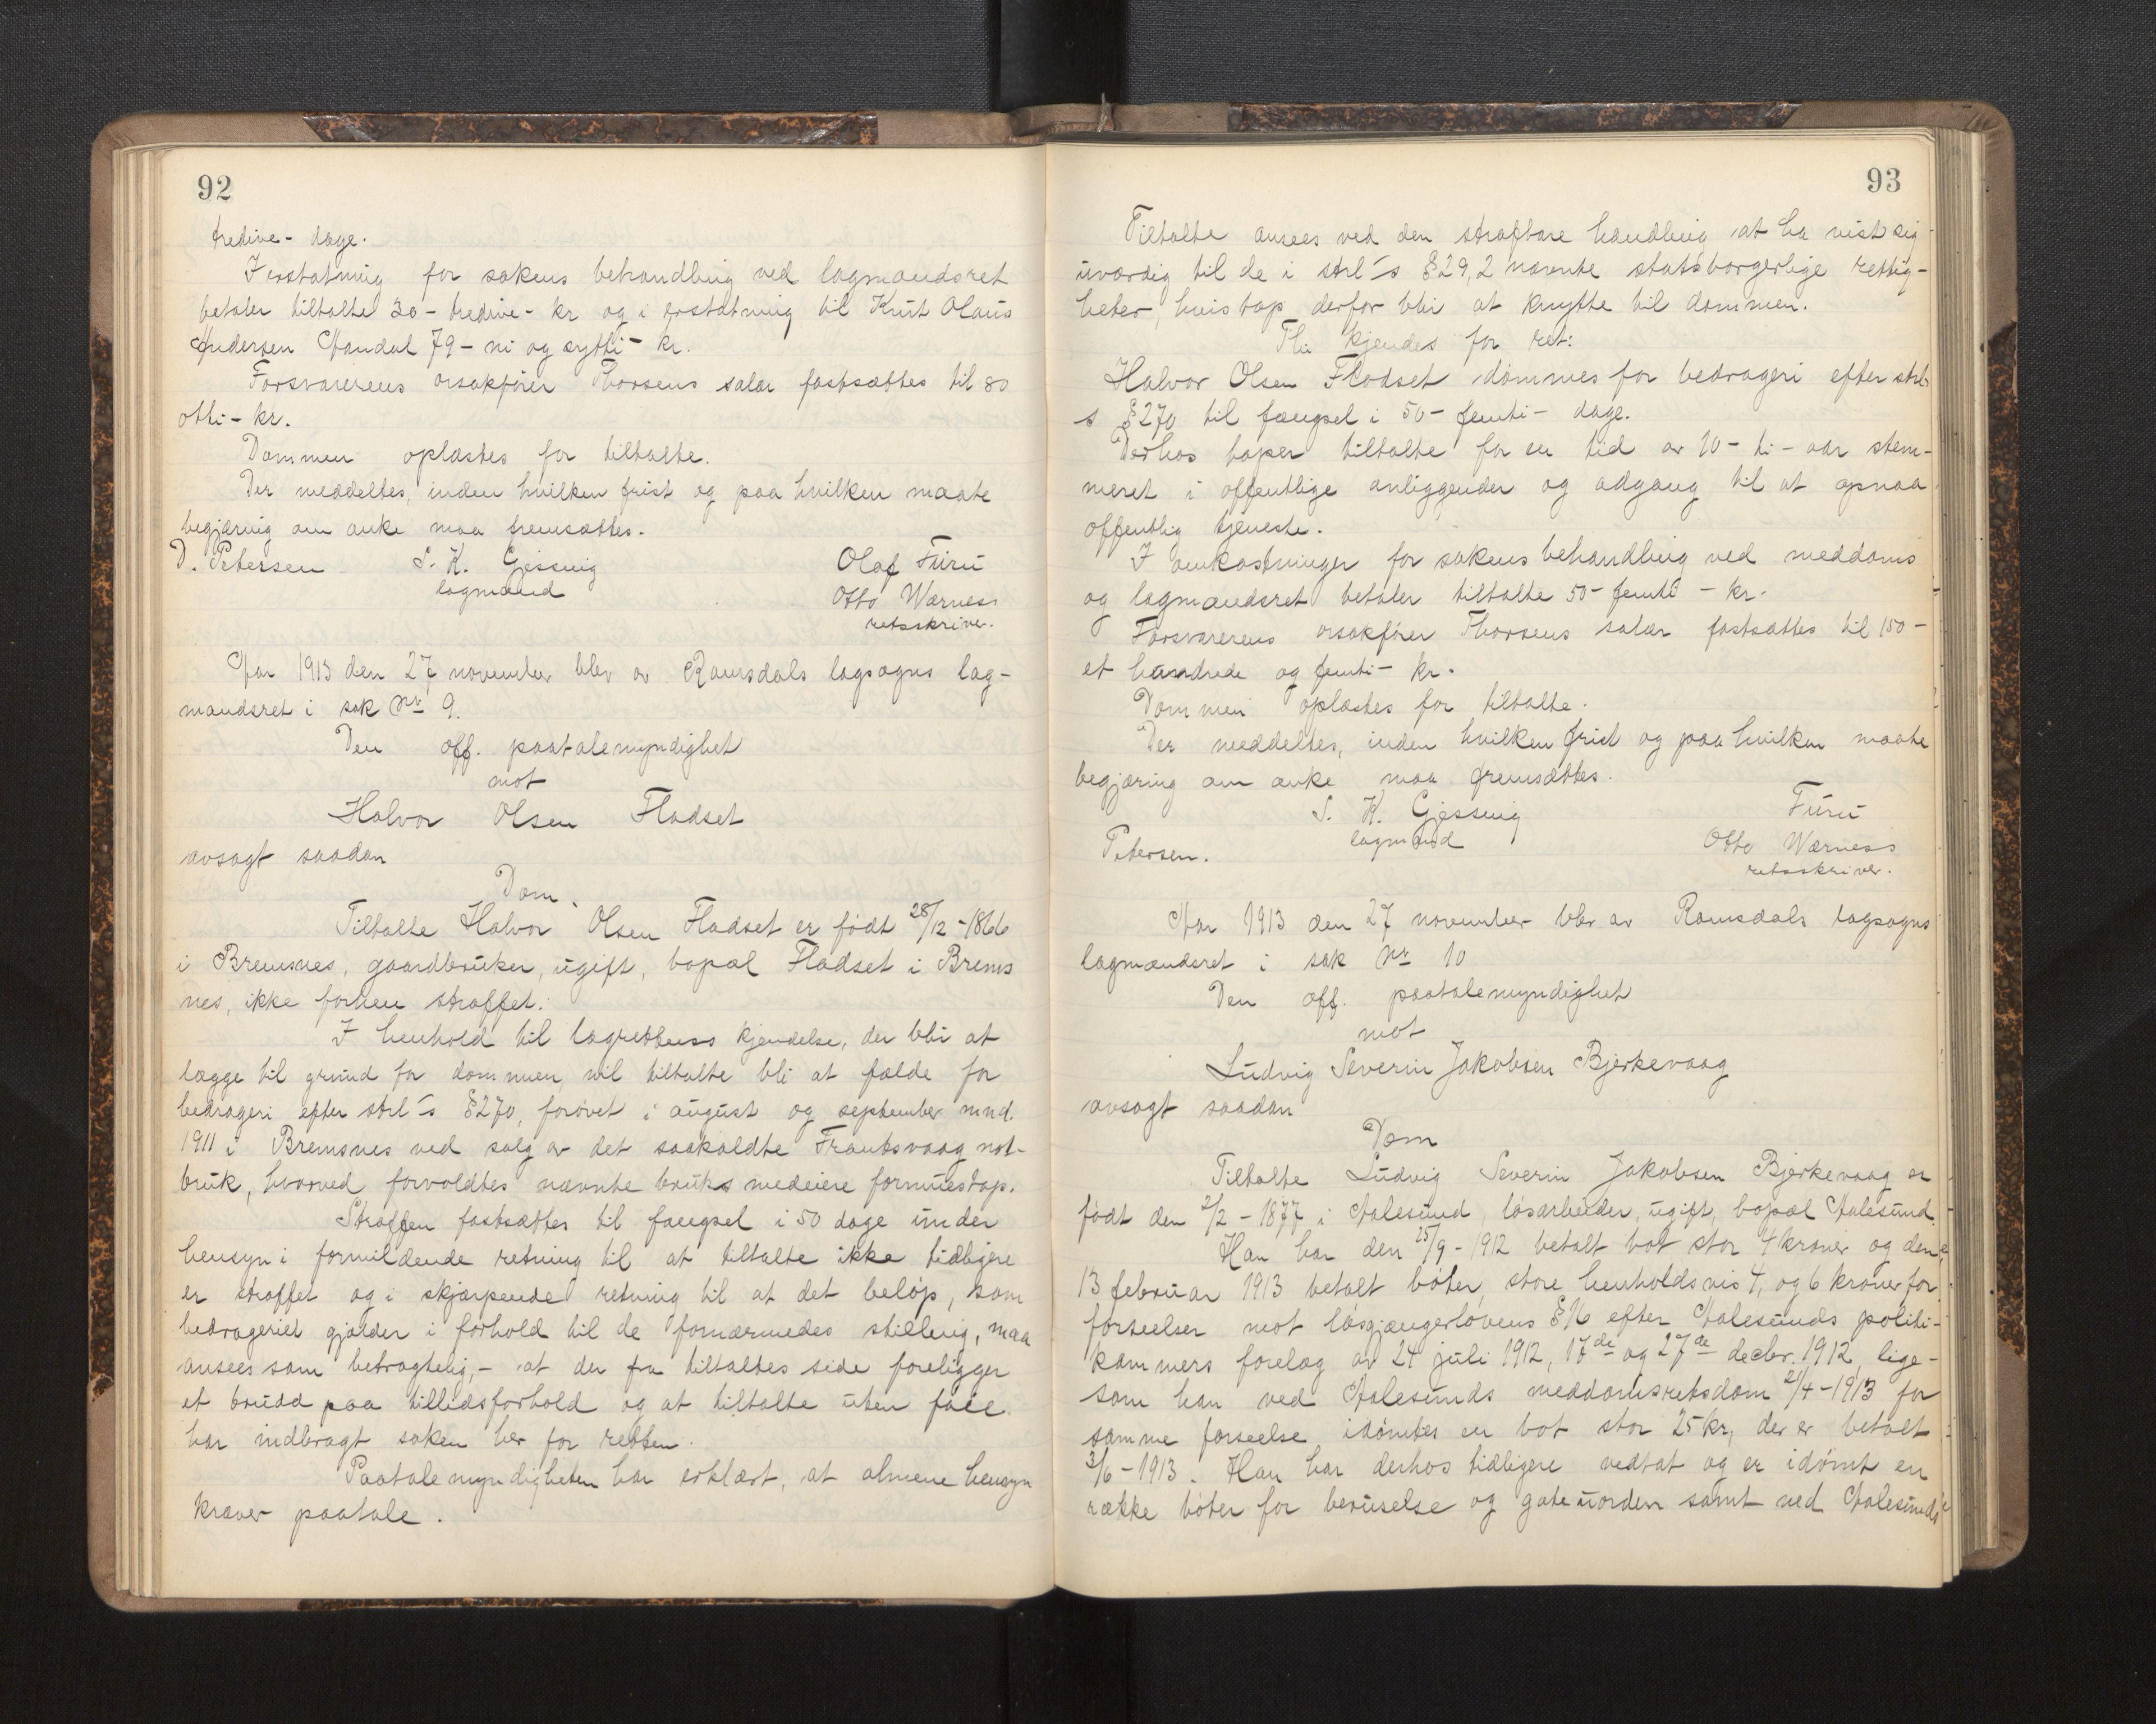 92
tredive - dage.
I erstatning for sakens behandling ved lagmandsret
betaler tiltalte 30 - tredive - kr og i erstatning til Knut Olaus
Andersen Aandal 79 - ni og sytti - kr.
Forsvarerens orsakfører Thorsens salær fastsættes til 80
otti - kr.
Dommen oplæstes for tiltalte.
Der meddeltes, inden hvilken frist og paa hvilken maate
begjæring om anke maa fremsættes.
D. Petersen S. K. Gjessing Olaf Furu
lagmand Otto Wærness
retsskriver.
Aar 1913 den 27 november blev av Romsdals lagsogns lag-
mandsret i sak Nr 9.
Den off. paatalemyndighet
mot
Halvor Olsen Fladset
avsagt saadan
Dom.
Tiltalte Halvor Olsen Fladset er født 28/12 - 1866
i Bremsnes, gaardbruker, ugift, bopæl Fladset i Brems
nes, ikke forhen straffet.
I henhold til lagrettens kjendelse, der blir at
lægge til grund for dommen, vil tiltalte bli at fælde for
bedrageri efter strl-s §270, forøvet i august og september mnd.
1911 i Bremsnes ved salg av det saakaldte Frantsvaag not-
bruk, hvorved forvoldtes nævnte bruks medeiere formuestap.
Straffen fastsættes til fængsel i 50 dage under
hensyn i formildende retning til at tiltalte ikke tidligere
er straffet og i skjærpende retning til at det beløp, som
bedrageriet gjælder i forhold til de fornærmedes stilling, maa
ansees som betragtelig, - at der fra tiltaltes side foreligger
et brudd paa tillidsforhold og at tiltalte uten føie
har indbragt saken her for retten.
Paatalemyndigheten har erklært, at almene hensyn
kræver paatale.
93
Tiltalte ansees ved den strafbare handling at ha vist sig
uværdig til de i strl-s §29,2 nævnte statsborgerlige rettig-
heter, hvis tap derfor blir at knytte til dommen.
Thi kjendes for ret:
Halvor Olsen Fladset dømmes for bedrageri efter strl-
s §270 til fængsel i 50 - femti - dage.
Derhos taper tiltalte for en tid av 10 - ti - aar stem-
meret i offentlige anliggender og adgang til at opnaa
offentlig tjeneste.
I omkostninger for sakens behandling ved meddoms
og lagmandsret betaler tiltalte 50 - femti - kr.
Forsvarerens orsakfører Thorsens salær fastsættes til 150 -
et hundrede og femti - kr.
Dommen oplæstes for tiltalte.
Der meddeltes, inden hvilken frist og paa hvilken maate
begjæring om anke maa fremsættes.
S. K. Gjessing Furu
Petersen. lagmand Otto Wærness
retsskriver.
Aar 1913 den 27 november blev av Romsdals lagsogns
lagmandsret i sak Nr 10
Den off. paatalemyndighet
mot
Ludvig Severin Jakobsen Bjerkevaag
avsagt saadan
Dom
Tiltalte Ludvig Severin Jakobsen Bjerkevaag er
født den 2/2 - 1877 i Aalesund, løsarbeider, ugift, bopæl Aalesund.
Han har den 25/9 - 1912 betalt bot stor 4 kroner og den
13 februar 1913 betalt bøter, store henholdsvis 4, og 6 kroner for
forseelser mot løsgjængerlovens §16 efter Aalesunds politi-
kammers forelæg av 24 juli 1912, 17de og 27de decbr. 1912, lige-
som han ved Aalesunds meddomsretsdom 2/4 - 1913 for
samme forseelse idømtes en bot stor 25 kr, der er betalt
3/6 - 1913. Han har derhos tidligere vedtat og er idømt en
række bøter for beruselse og gateuorden samt ved Aalesunds